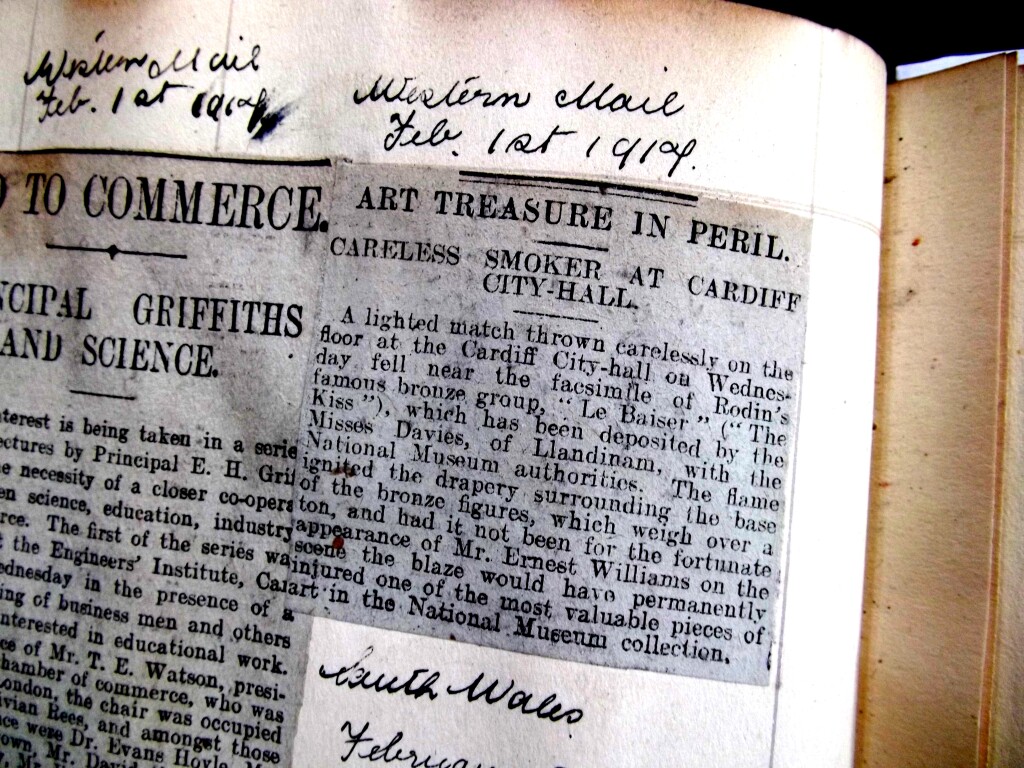 Western Mail
Feb. 1st 1914
TO COMMERCE.
NCIPAL GRIFFITHS
AND SCIENCE.
nterest is being taken in a serie
ectures by Principal E. H. Grif
e necessity of a closer co-opera
en science, education, industry
rce. The first of the series wa
t the Engineers' Institute, Ca
ednesday in the presence of a
ing of business men and others
nterested in educational work.
ce of Mr. T. E. Watson, presi-
hamber of commerce, who was
ondon, the chair was occupied
ivian Rees, and amongst those
ce were Dr. Evans Hoyle,
own, Mr. David
Western Mail
Feb. 1st 1914.
ART TREASURE IN PERIL.
CARELESS SMOKER AT CARDIFF
CITY-HALL.
A lighted match thrown carelessly on the
floor at the Cardiff City-hall on Wednes-
day fell near the facsimile of Rodin's
famous bronze group, "Le Baiser" ("The
Kiss"), which has been deposited by the
Misses Davies, of Llandinam, with the
National Museum authorities. The flame
ignited the drapery surrounding the base
of the bronze figures, which weigh over a
ton, and had it not been for the fortunate
appearance of Mr. Ernest Williams on the
scene the blaze would have permanently
injured one of the most valuable pieces of
art in the National Museum collection.
South Wales